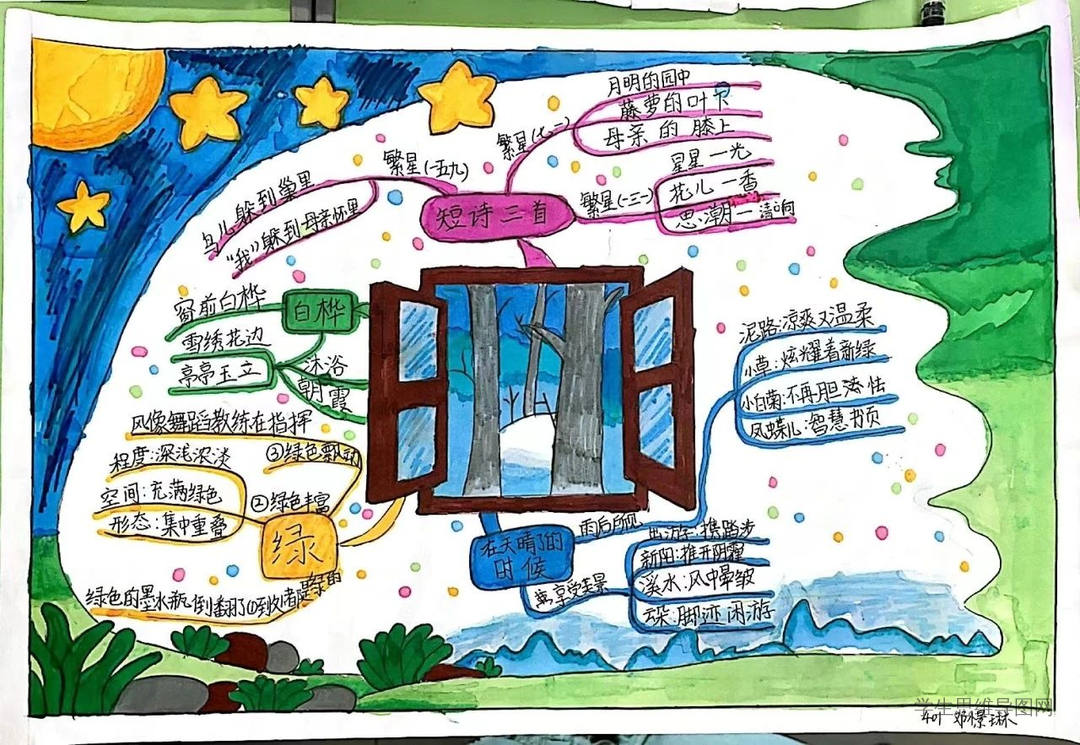 短诗三首
繁星(七一)
月明的园中
藤萝的叶下
母亲的膝上
繁星(一三一)
星星一光
花儿一香
思潮一清响
繁星(一五九)
鸟儿躲到巢里
“我”躲到母亲怀里
白桦
窗前白桦
雪绣花边
亭亭玉立
沐浴
朝霞
绿
风像舞蹈教练在指挥
③绿色飘动
②绿色丰富
程度:深浅浓淡
空间:充满绿色
形态:集中重叠
绿色的墨水瓶倒翻了
在天晴了的
时候
泥路:凉爽又温柔
小草:炫耀着新绿
小白菊:不再胆怯
凤蝶儿:智慧书页
享受美景
出游去:携踏步
新阳:推开阴霾
溪水:风中晕皱
云朵:脚迹闲游
学生思维导图网
401 邓傑琳